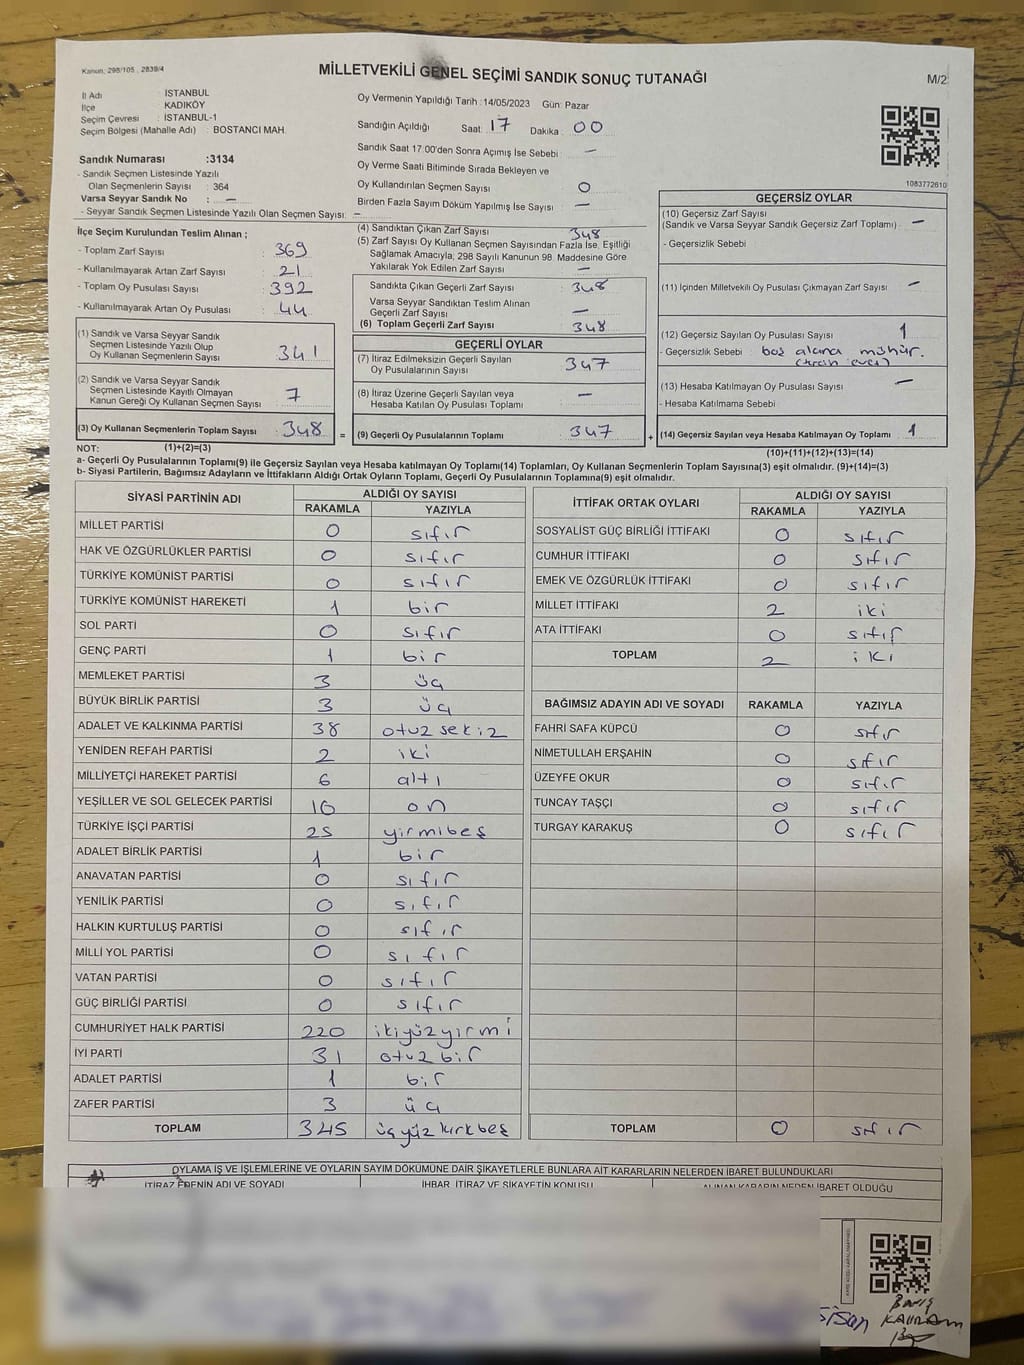 Kanun, 298/105, 2839/4
MİLLETVEKİLİ GENEL SEÇİMİ SANDIK SONUÇ TUTANAĞI
M/2
İl Adı : İSTANBUL
İlçe : KADIKÖY
Seçim Çevresi : İSTANBUL-1
Seçim Bölgesi (Mahalle Adı) : BOSTANCI MAH.
Sandık Numarası :3134
- Sandık Seçmen Listesinde Yazılı
Olan Seçmenlerin Sayısı : 364
Varsa Seyyar Sandık No : —
- Seyyar Sandık Seçmen Listesinde Yazılı Olan Seçmen Sayısı: —
Oy Vermenin Yapıldığı Tarih :14/05/2023 Gün: Pazar
Sandığın Açıldığı Saat: 17 Dakika : 00
Sandık Saat 17:00'den Sonra Açımış İse Sebebi : —
Oy Verme Saati Bitiminde Sırada Bekleyen ve
Oy Kullandırılan Seçmen Sayısı : 0
Birden Fazla Sayım Döküm Yapılmış İse Sayısı : —
1083772610
İlçe Seçim Kurulundan Teslim Alınan ;
- Toplam Zarf Sayısı : 369
- Kullanılmayarak Artan Zarf Sayısı : 21
- Toplam Oy Pusulası Sayısı : 392
- Kullanılmayarak Artan Oy Pusulası : 44
(1) Sandık ve Varsa Seyyar Sandık
Seçmen Listesinde Yazılı Olup
Oy Kullanan Seçmenlerin Sayısı : 341
(2) Sandık ve Varsa Seyyar Sandık
Seçmen Listesinde Kayıtlı Olmayan
Kanun Gereği Oy Kullanan Seçmen Sayısı : 7
(3) Oy Kullanan Seçmenlerin Toplam Sayısı : 348
(4) Sandıktan Çıkan Zarf Sayısı : 348
(5) Zarf Sayısı Oy Kullanan Seçmen Sayısından Fazla İse, Eşitliği
Sağlamak Amacıyla; 298 Sayılı Kanunun 98. Maddesine Göre
Yakılarak Yok Edilen Zarf Sayısı : —
Sandıkta Çıkan Geçerli Zarf Sayısı : 348
Varsa Seyyar Sandıktan Teslim Alınan
Geçerli Zarf Sayısı : —
(6) Toplam Geçerli Zarf Sayısı : 348
GEÇERLİ OYLAR
(7) İtiraz Edilmeksizin Geçerli Sayılan
Oy Pusulalarının Sayısı : 347
(8) İtiraz Üzerine Geçerli Sayılan veya
Hesaba Katılan Oy Pusulası Toplamı : —
= (9) Geçerli Oy Pusulalarının Toplamı : 347
GEÇERSİZ OYLAR
(10) Geçersiz Zarf Sayısı
(Sandık ve Varsa Seyyar Sandık Geçersiz Zarf Toplamı) : —
- Geçersizlik Sebebi
(11) İçinden Milletvekili Oy Pusulası Çıkmayan Zarf Sayısı : —
(12) Geçersiz Sayılan Oy Pusulası Sayısı : 1
- Geçersizlik Sebebi : boş alana mühür.
(13) Hesaba Katılmayan Oy Pusulası Sayısı : —
- Hesaba Katılmama Sebebi
+ (14) Geçersiz Sayılan veya Hesaba Katılmayan Oy Toplamı : 1
NOT: (1)+(2)=(3)
(10)+(11)+(12)+(13)=(14)
a- Geçerli Oy Pusulasının Toplamı(9) ile Geçersiz Sayılan veya Hesaba katılmayan Oy Toplamı(14) Toplamları, Oy Kullanan Seçmenlerin Toplam Sayısına(3) eşit olmalıdır. (9)+(14)=(3)
b- Siyasi Partilerin, Bağımsız Adayların ve İttifakların Aldığı Ortak Oyların Toplamı, Geçerli Oy Pusulalarının Toplamına(9) eşit olmalıdır.
SİYASİ PARTİNİN ADI
ALDIĞI OY SAYISI
RAKAMLA YAZIYLA
MİLLET PARTİSİ 0 sıfır
HAK VE ÖZGÜRLÜKLER PARTİSİ 0 sıfır
TÜRKİYE KOMÜNİST PARTİSİ 0 sıfır
TÜRKİYE KOMÜNİST HAREKETİ 1 bir
SOL PARTİ 0 sıfır
GENÇ PARTİ 1 bir
MEMLEKET PARTİSİ 3 üç
BÜYÜK BİRLİK PARTİSİ 3 üç
ADALET VE KALKINMA PARTİSİ 38 otuz sekiz
YENİDEN REFAH PARTİSİ 2 iki
MİLLİYETÇİ HAREKET PARTİSİ 6 altı
YEŞİLLER VE SOL GELECEK PARTİSİ 10 on
TÜRKİYE İŞÇİ PARTİSİ 25 yirmibeş
ADALET BİRLİK PARTİSİ 1 bir
ANAVATAN PARTİSİ 0 sıfır
YENİLİK PARTİSİ 0 sıfır
HALKIN KURTULUŞ PARTİSİ 0 sıfır
MİLLİ YOL PARTİSİ 0 sıfır
VATAN PARTİSİ 0 sıfır
GÜÇ BİRLİĞİ PARTİSİ 0 sıfır
CUMHURİYET HALK PARTİSİ 220 ikiyüzyirmi
İYİ PARTİ 31 otuz bir
ADALET PARTİSİ 1 bir
ZAFER PARTİSİ 3 üç
TOPLAM 345 üçyüz kırkbeş
İTTİFAK ORTAK OYLARI
ALDIĞI OY SAYISI
RAKAMLA YAZIYLA
SOSYALİST GÜÇ BİRLİĞİ İTTİFAKI 0 sıfır
CUMHUR İTTİFAKI 0 sıfır
EMEK VE ÖZGÜRLÜK İTTİFAKI 0 sıfır
MİLLET İTTİFAKI 2 iki
ATA İTTİFAKI 0 sıfır
TOPLAM 2 iki
BAĞIMSIZ ADAYIN ADI VE SOYADI RAKAMLA YAZIYLA
FAHRİ SAFA KÜPCÜ 0 sıfır
NİMETULLAH ERŞAHİN 0 sıfır
ÜZEYFE OKUR 0 sıfır
TUNCAY TAŞÇI 0 sıfır
TURGAY KARAKUŞ 0 sıfır
TOPLAM 0 sıfır
OYLAMA İŞ VE İŞLEMLERİNE VE OYLARIN SAYIM DÖKÜMÜNE DAİR ŞİKAYETLERLE BUNLARA AİT KARARLARIN NELERDEN İBARET BULUNDUKLARI
İTİRAZ EDENİN ADI VE SOYADI
İHBAR, İTİRAZ VE ŞİKAYETİN KONUSU
ALINAN KARARIN NEDEN İBARET OLDUĞU
Barış